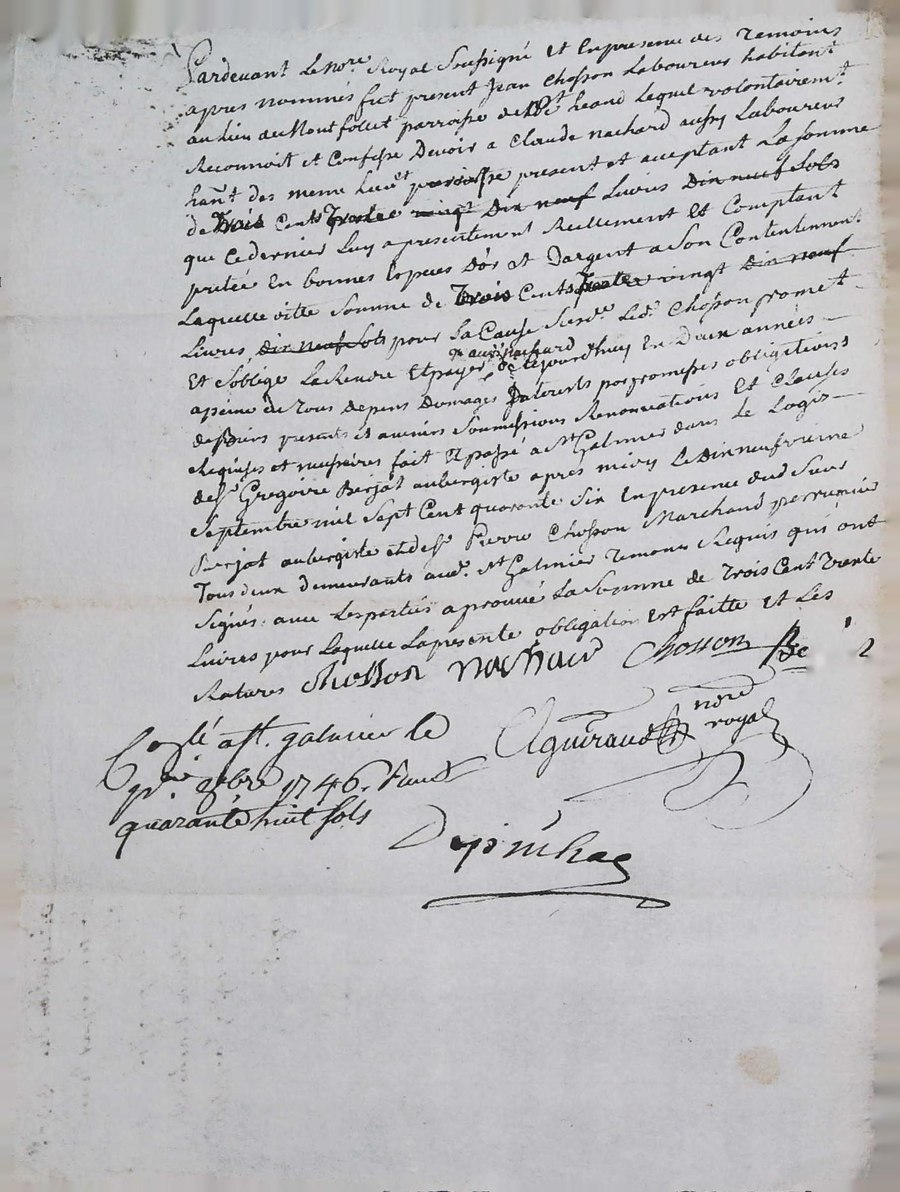 Pardevant Le no.re Royal Soussigné et En presence des temoins
apres nommés fut present Jean Chosson Laboureur habitant
au Lieu de Montfollet parroisse de Lequel volontairem.t
Reconnoit et Confesse Devoir a Claude nachard aussy Laboureur
han.t des meme Lieu et parroisse present et acceptant La Somme
de Trois Cents Trente vingt Dix neuf Livres Dix neuf Sols
que Ce dernier Luy a presentement Reellement Et Comptant
pretée En bonnes Especes D'or et D'argent a Son Contentement
Laquelle ditte Somme de Trois Cents Trente vingt Dix neuf
Livres Dix neuf Sols pour La Cause Susd.e Led. Chosson promet
Et S'oblige La Rendre Et payer aud. nachard d'aujourd'huy En Deux années
a peine de Tous Depens Domages Interests par promesses obligations
de biens presents et avenirs Soumissions Renonciations Et Clauses
Requises et necessaires fait Et passé a S.t Galmier dans Le Logis
de S.r Gregoire Berjat aubergiste apres midy Le Dix neufvieme
Septembre mil Sept Cent quarante Six En presence dud. Sieur
Berjat aubergiste et de S.r Pierre Chosson Marchand
Tous deux Demeurants aud. S.t Galmier Temoins Requis qui ont
Signés avec Les parties a prouvé La Somme de Trois Cent Trente
Livres pour Laquelle La presente obligation Est faitte et Les
Ratures Chosson nachard Chosson
no.re
royal
Con.lé a S.t galmier le
8bre 1746. Reçu
quarante huit sols